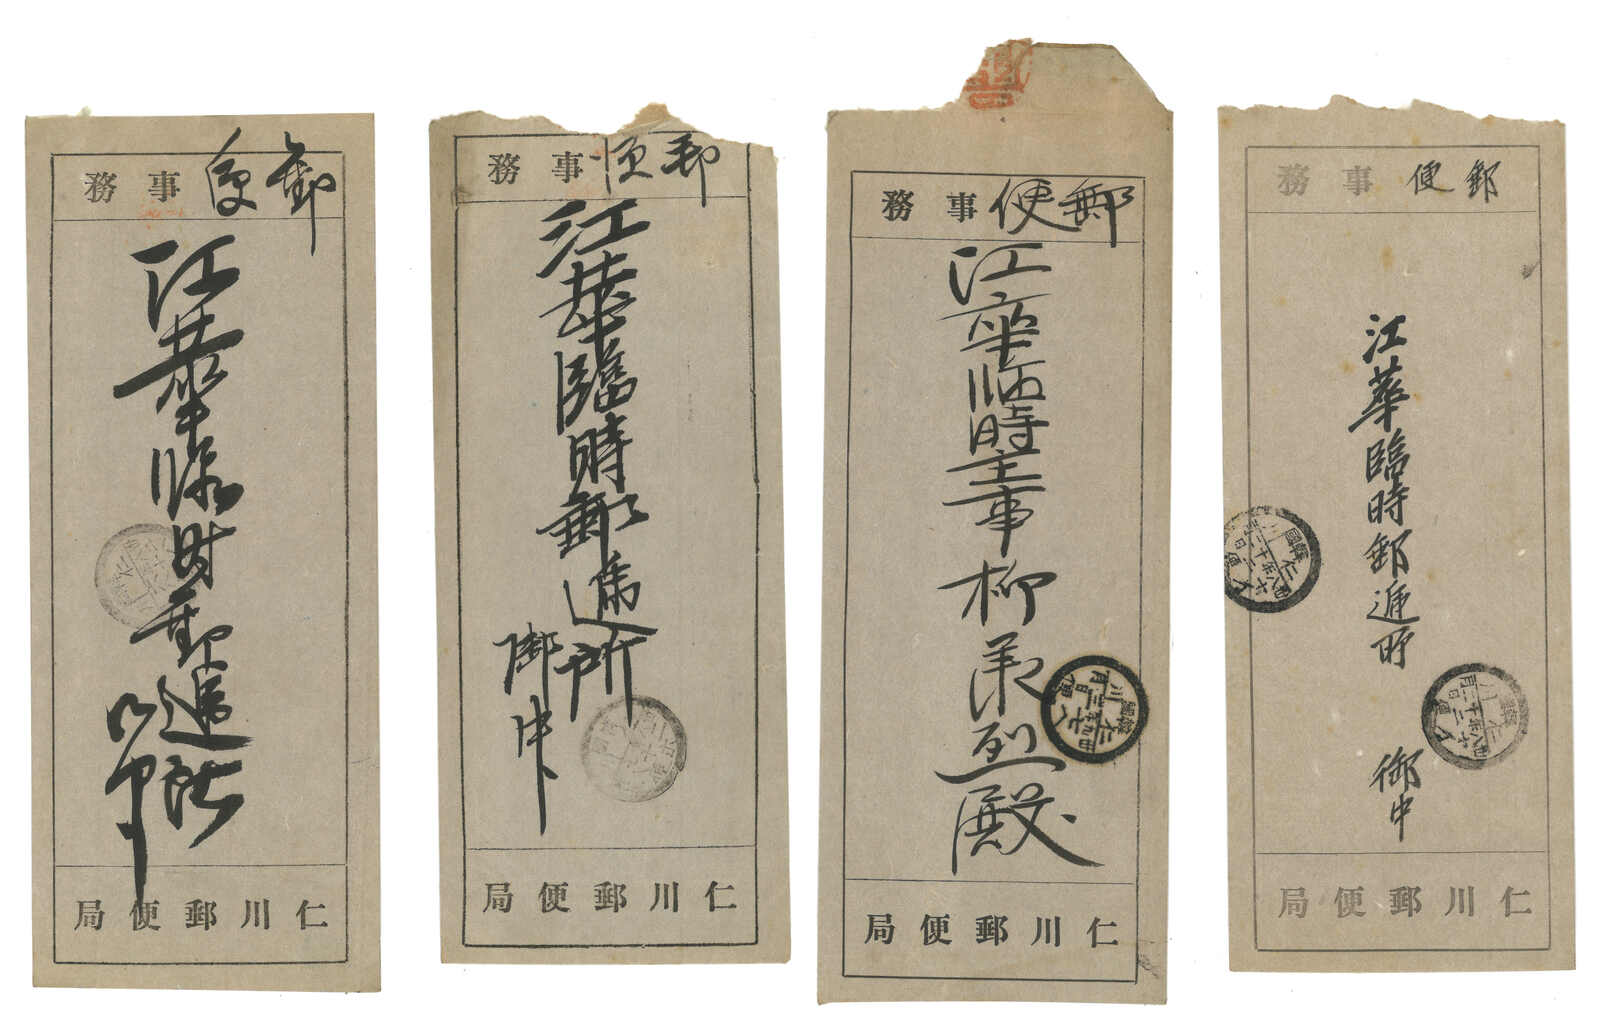 郵便事務
江華臨時郵逓所
御中
仁川郵便局
郵便事務
江華臨時郵逓所
御中
仁川郵便局
郵便事務
江華臨時主事柳承烈殿
仁川郵便局
郵便事務
江華臨時郵逓所
御中
仁川郵便局